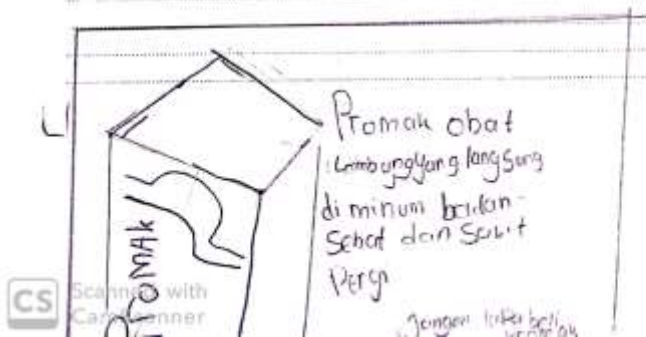 Promah obat
Lambung yang langsung
di minum badan
Sehat dan Sakit
Pergi
Jangan lupa beli
PROMAK
CS Scanned with
CamScanner